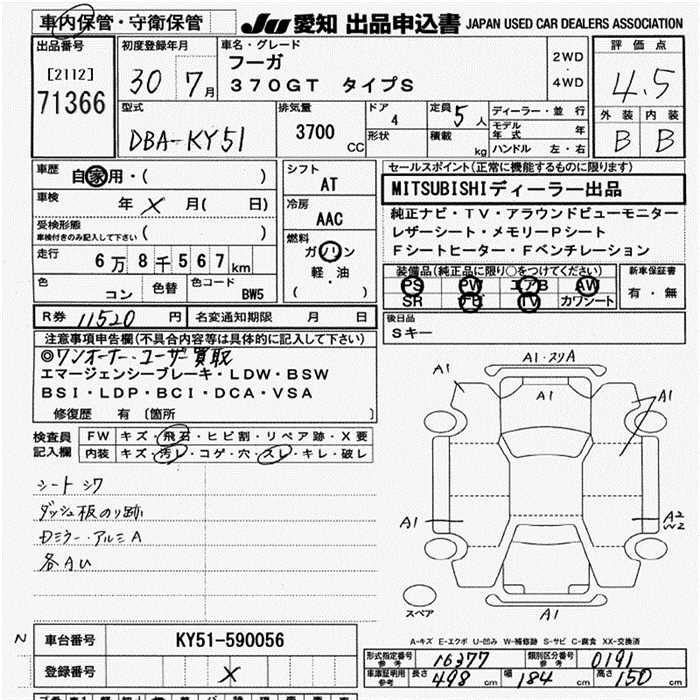 車内保管・守衛保管
JU 愛知 出品申込書 JAPAN USED CAR DEALERS ASSOCIATION
出品番号
[2112]
71366
初度登録年月
30 7月
車名・グレード
フーガ
370GT タイプS
2WD
・
4WD
評価点
4.5
外装 内装
B B
型式
DBA-KY51
排気量
3700 CC
ドア
4
形状
定員 5人
積載 kg
ディーラー・並行
モデル年式 年
ハンドル 左・右
車歴
自家用・( )
車検 年 X 月( 日)
受検形態
車検付きのみ記入して下さい ( )
走行
6万8千567km
色
コン
色替
色コード
BW5
シフト
AT
冷房
AAC
燃料
ガソリン
軽・油
( )
セールスポイント(正常に機能するものに限ります)
MITSUBISHIディーラー出品
純正ナビ・TV・アラウンドビューモニター
レザーシート・メモリーPシート
Fシートヒーター・Fベンチレーション
装備品(純正品に限り○をつけてください)
PS PW エアB AW
SR ナビ TV カワシート
新車保証書
有・無
R券 11520 円
名変通知期限 月 日
後日品
Sキー
注意事項申告欄(不具合内容等は具体的に記入して下さい)
◎ワンオーナー・ユーザー買取
エマージェンシーブレーキ・LDW・BSW
BSI・LDP・BCI・DCA・VSA
修復歴 有 〔箇所 〕
検査員記入欄
FW キズ・飛石・ヒビ割・リペア跡・X要
内装 キズ・汚レ・コゲ・穴・スレ・キレ・破レ
シート シワ
ダッシュ板のり跡
ドミラー・アルミA
各AU
A1・スリA
A1
A1
A1
A1
A2
W2
A1
スペア
A-キズ E-エクボ U-凹み W-補修跡 S-サビ C-腐食 XX-交換済
N
車台番号 KY51-590056
登録番号 X
形式指定番号
参考
16377
類別区分番号
参考
0191
車庫証明用
参考
長さ 498 cm 幅 184 cm 高さ 150 cm